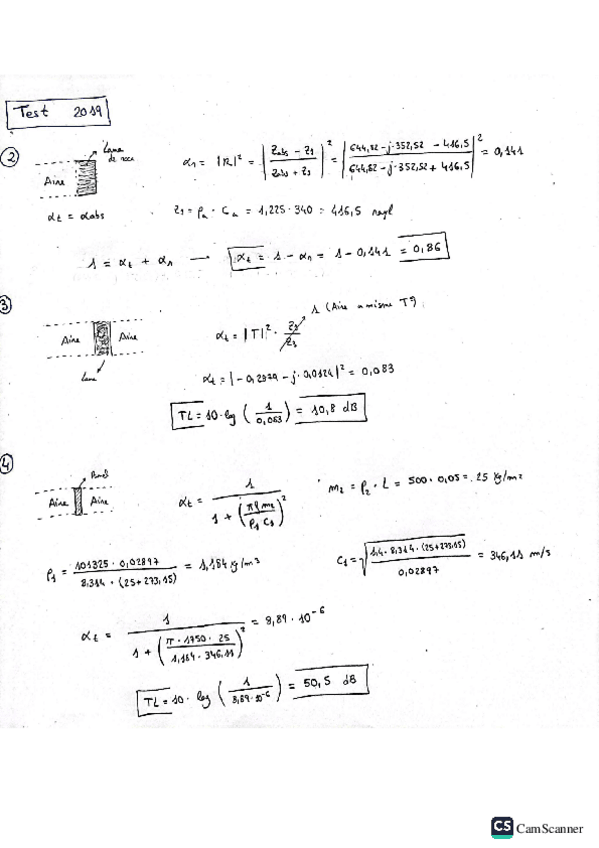 Test 2019
2
Lana
de roca
Aire
αr = |R|² = |Zabs - Z1 / Zabs + Z1|² = |644,82 - j·352,52 - 416,5 / 644,82 - j·352,52 + 416,5|² = 0,141
αt = αabs
Z1 = ρa · ca = 1,225 · 340 = 416,5 rayl
1 = αt + αr → αt = 1 - αr = 1 - 0,141 = 0,86
3
Aire Aire
Lana
αt = |T|² · Z1/Z1 1 (Aire a misma Tª)
αt = |-0,2879 - j·0,0124|² = 0,083
TL = 10·log (1/0,083) = 10,8 dB
4
Panel
Aire Aire
αt = 1 / 1 + (πfm2 / ρ1 c1)²
m2 = ρ2 · L = 500 · 0,05 = 25 kg/m²
ρ1 = 101325 · 0,02897 / 8,314 · (25+273,15) = 1,184 kg/m³
c1 = √(1,4 · 8,314 · (25+273,15) / 0,02897) = 346,11 m/s
αt = 1 / 1 + (π · 1750 · 25 / 1,184 · 346,11)² = 8,89 · 10⁻⁶
TL = 10 · log (1 / 8,89·10⁻⁶) = 50,5 dB
CS CamScanner